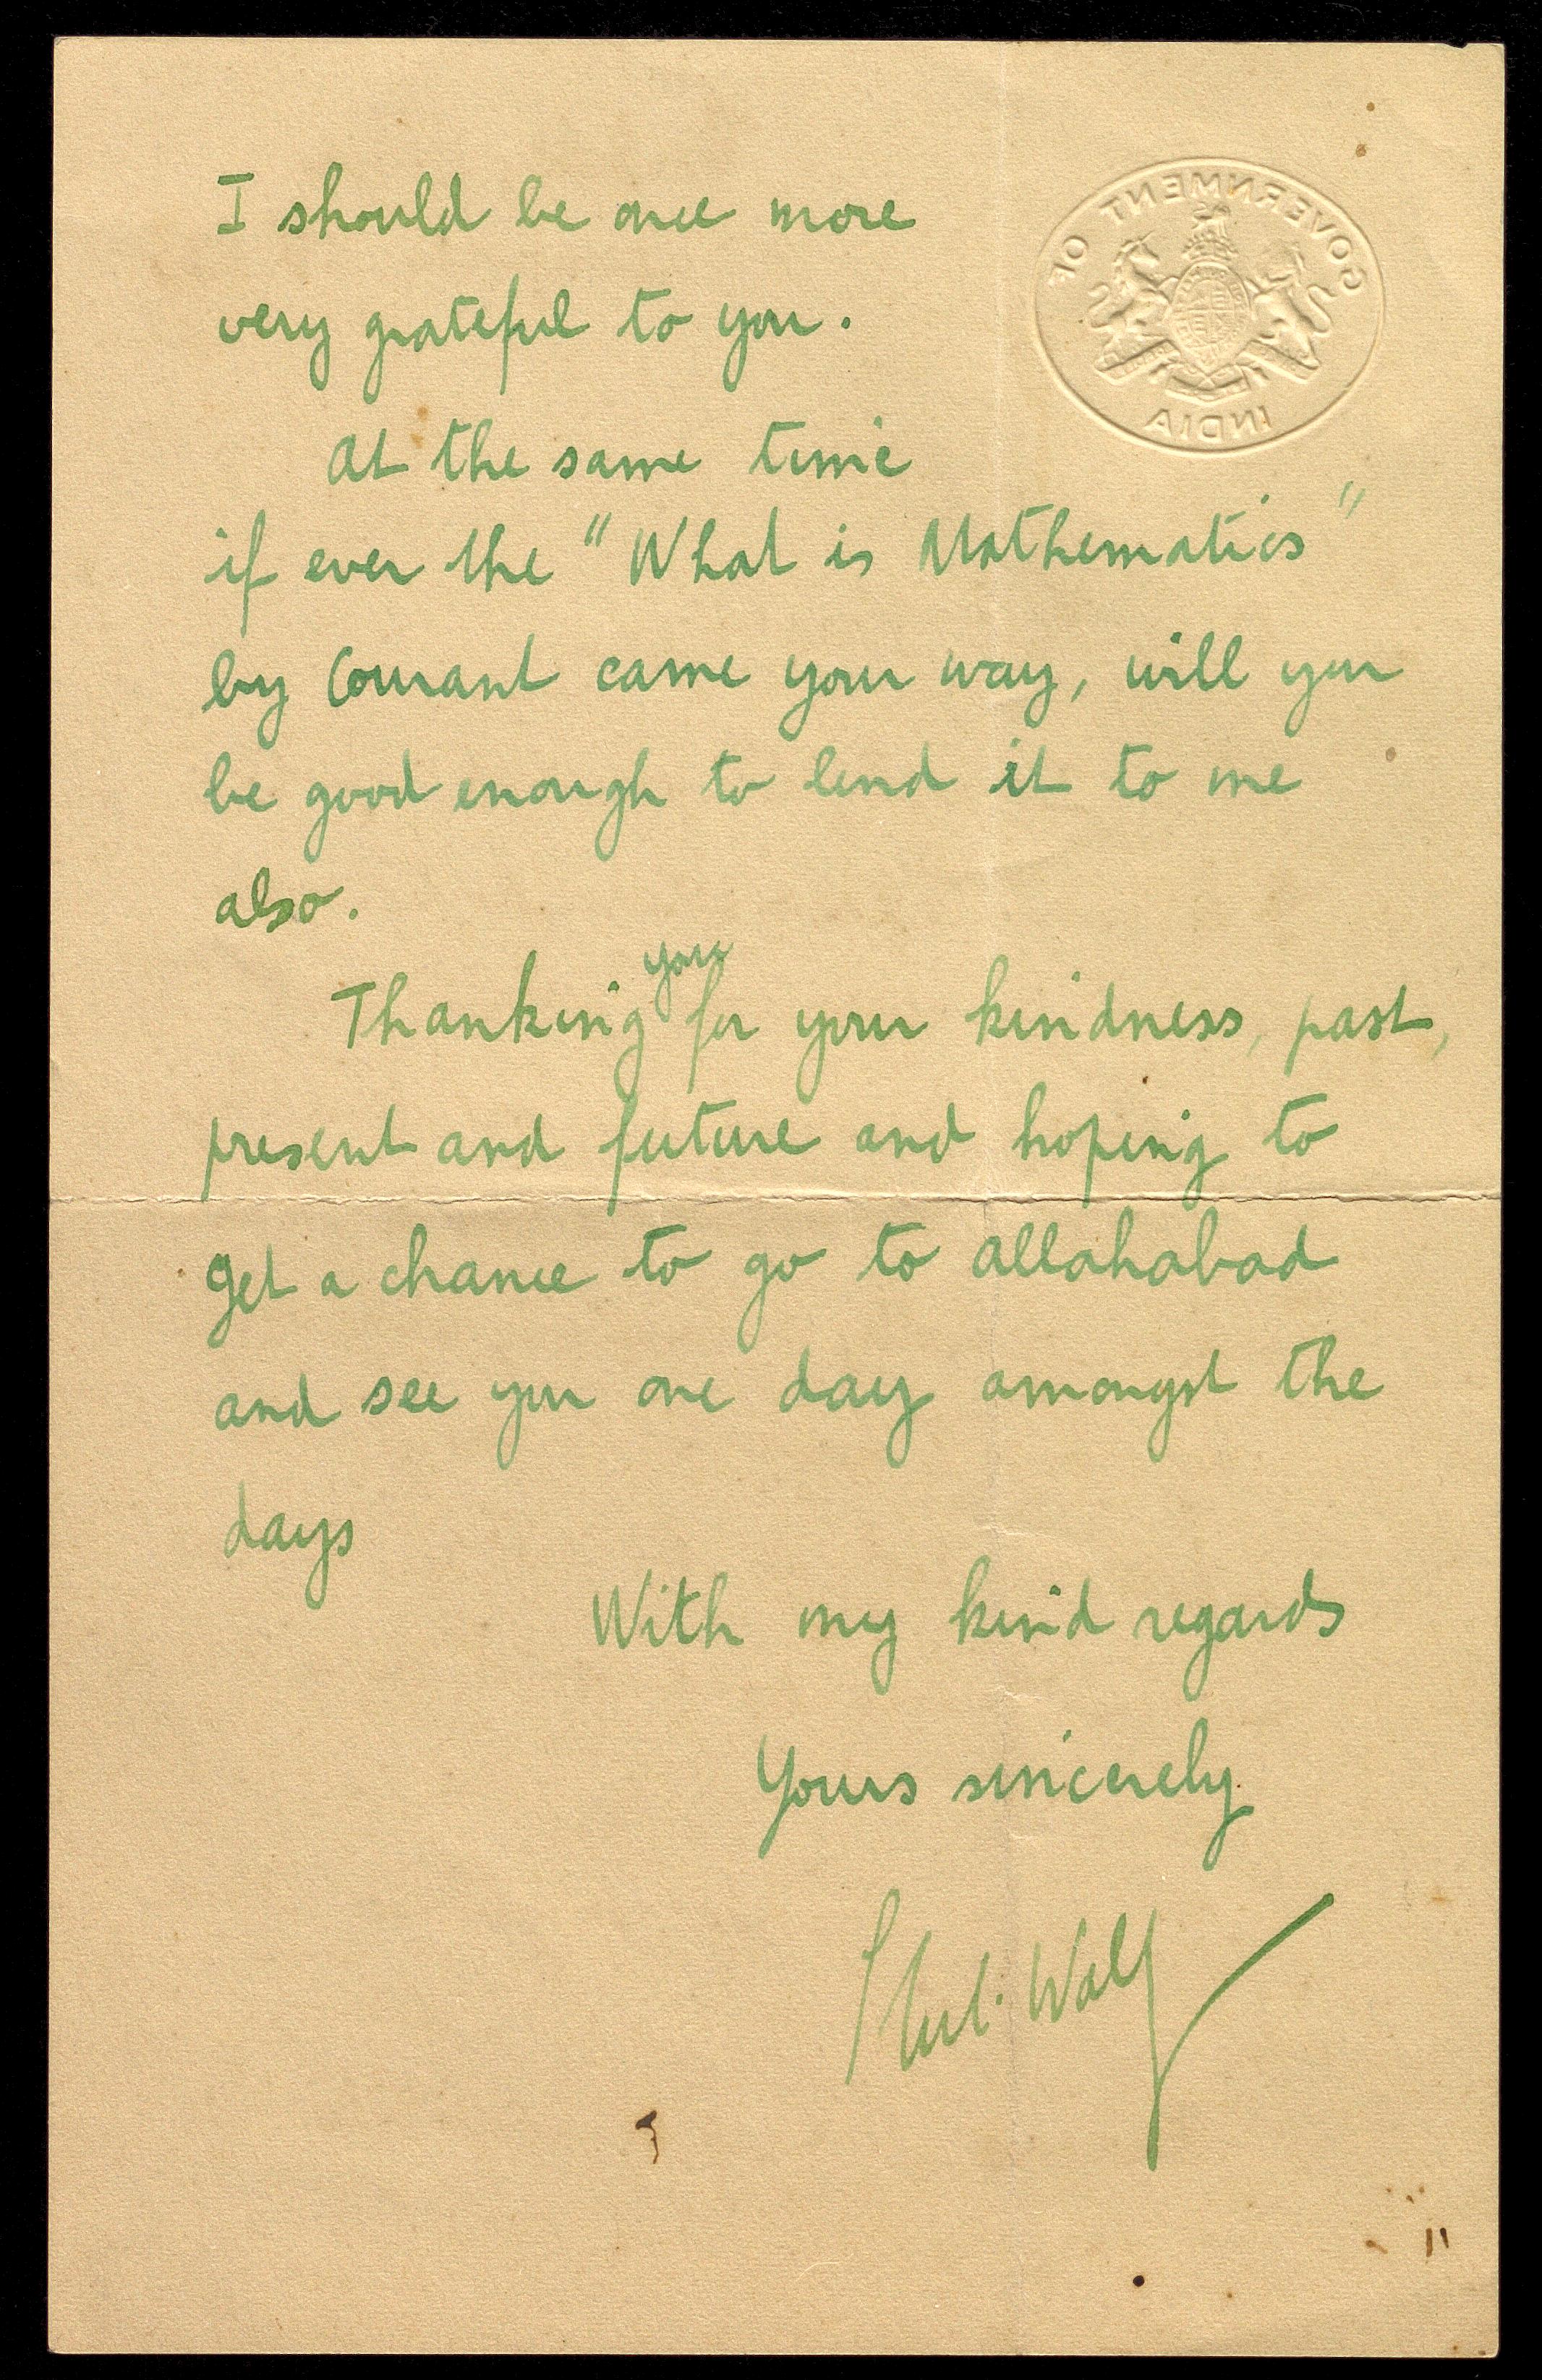 GOVERNMENT OF
INDIA
I should be once more
very grateful to you.
At the same time
if ever the "What is Mathematics"
by Courant came your way, will you
be good enough to lend it to me
also.
Thanking you for your kindness, past,
present and future and hoping to
get a chance to go to Allahabad
and see you one day amongst the
days
With my kind regards
Yours sincerely